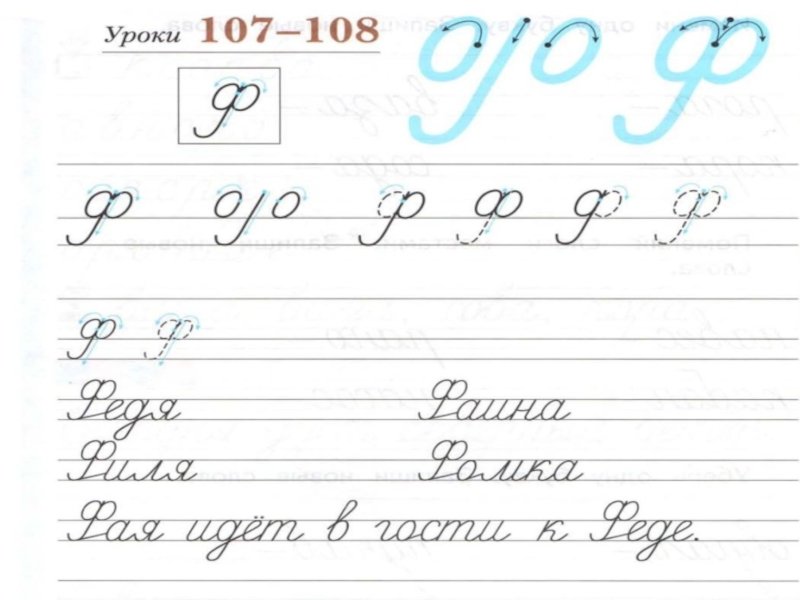 Уроки 107–108
Ф
Ф Ф Ф Ф Ф
Ф Ф
Федя Фаина
Филя Фомка
Фая идёт в гости к Феде.